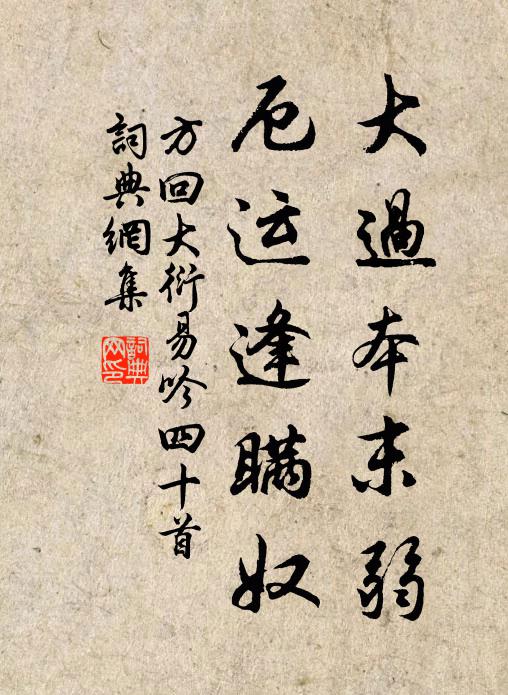 大過本末弱
厄运逢瞞奴
方回大衍易吟四十首
詞典網集
詞典
网印